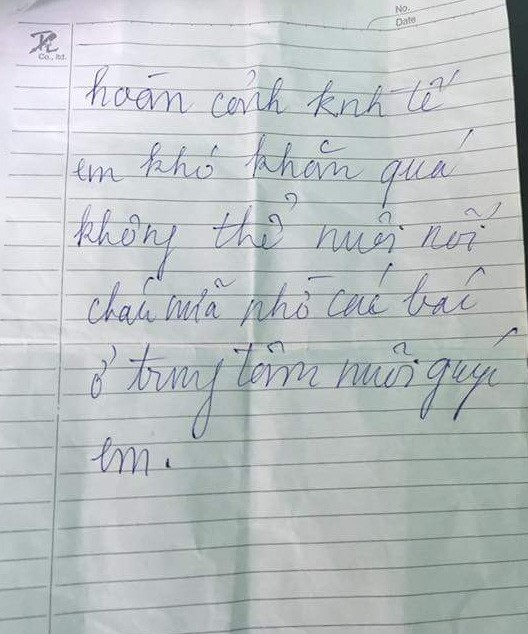 No.
Date
Co., ltd.
hoán cảnh knh tế
em khó khăn quá
không thể nuôi nỗi
cháu nữa nhờ các bác
ở trung tâm nuôi guý
em.